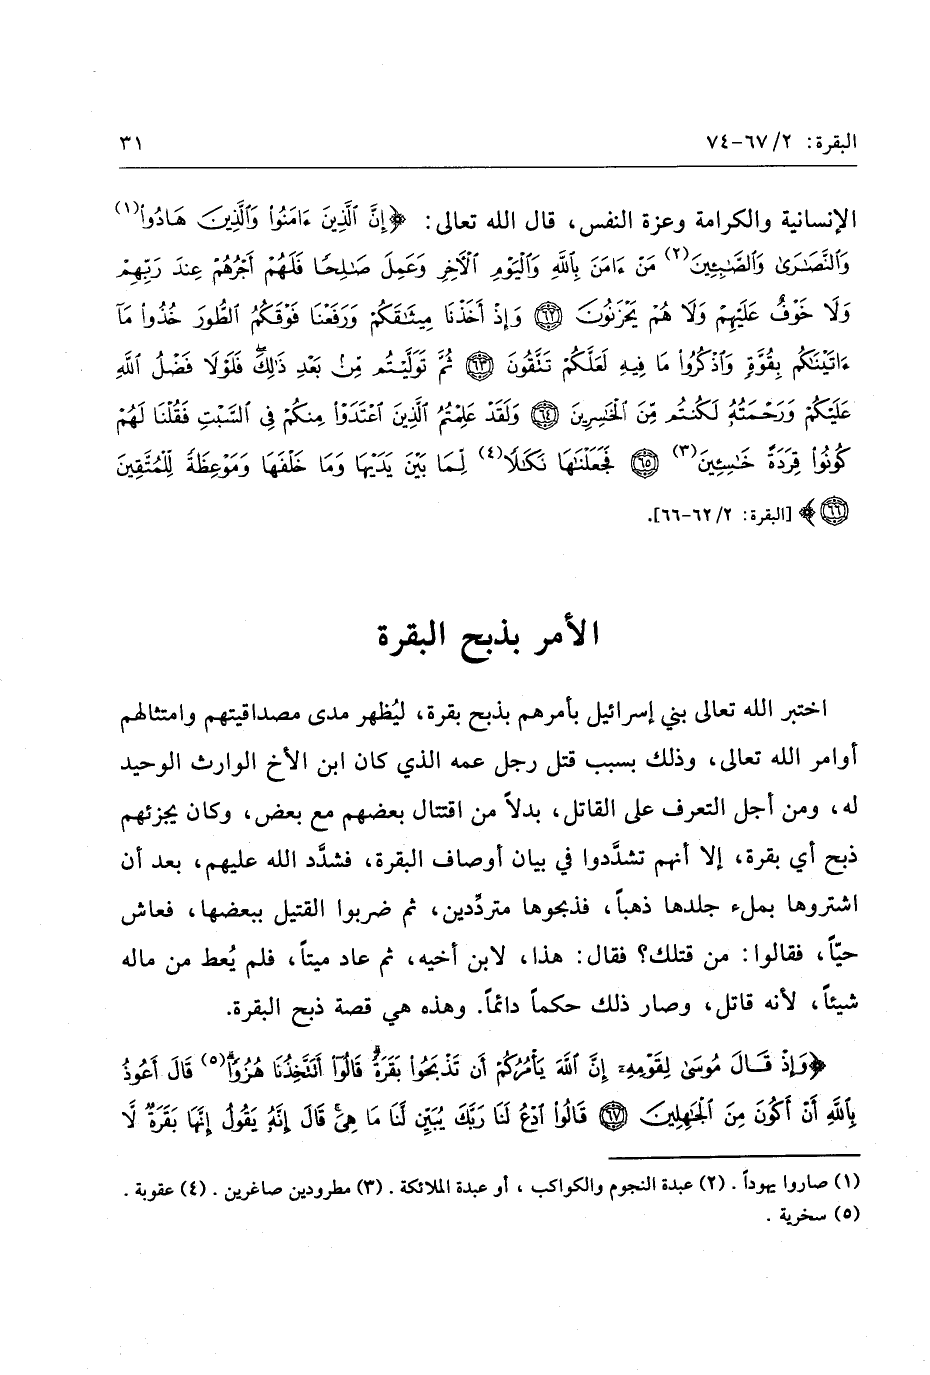 البقرة: ٢/ ٦٧-٧٤ ٣١
الإنسانية والكرامة وعزة النفس، قال الله تعالى: ﴿إِنَّ ٱلَّذِينَ ءَامَنُوا۟ وَٱلَّذِينَ هَادُوا۟(١)
وَٱلنَّصَـٰرَىٰ وَٱلصَّـٰبِـِٔينَ(٢) مَنْ ءَامَنَ بِٱللَّهِ وَٱلْيَوْمِ ٱلْـَٔاخِرِ وَعَمِلَ صَـٰلِحًا فَلَهُمْ أَجْرُهُمْ عِندَ رَبِّهِمْ
وَلَا خَوْفٌ عَلَيْهِمْ وَلَا هُمْ يَحْزَنُونَ ۝٦٢ وَإِذْ أَخَذْنَا مِيثَـٰقَكُمْ وَرَفَعْنَا فَوْقَكُمُ ٱلطُّورَ خُذُوا۟ مَآ
ءَاتَيْنَـٰكُم بِقُوَّةٍ وَٱذْكُرُوا۟ مَا فِيهِ لَعَلَّكُمْ تَتَّقُونَ ۝٦٣ ثُمَّ تَوَلَّيْتُم مِّنۢ بَعْدِ ذَٰلِكَ ۖ فَلَوْلَا فَضْلُ ٱللَّهِ
عَلَيْكُمْ وَرَحْمَتُهُۥ لَكُنتُم مِّنَ ٱلْخَـٰسِرِينَ ۝٦٤ وَلَقَدْ عَلِمْتُمُ ٱلَّذِينَ ٱعْتَدَوْا۟ مِنكُمْ فِى ٱلسَّبْتِ فَقُلْنَا لَهُمْ
كُونُوا۟ قِرَدَةً خَـٰسِـِٔينَ(٣) ۝٦٥ فَجَعَلْنَـٰهَا نَكَـٰلًا(٤) لِّمَا بَيْنَ يَدَيْهَا وَمَا خَلْفَهَا وَمَوْعِظَةً لِّلْمُتَّقِينَ
۝٦٦﴾ [البقرة: ٢/ ٦٢-٦٦].
الأمر بذبح البقرة
اختبر الله تعالى بني إسرائيل بأمرهم بذبح بقرة، ليُظهر مدى مصداقيتهم وامتثالهم
أوامر الله تعالى، وذلك بسبب قتل رجل عمه الذي كان ابن الأخ الوارث الوحيد
له، ومن أجل التعرف على القاتل، بدلاً من اقتتال بعضهم مع بعض، وكان يجزئهم
ذبح أي بقرة، إلا أنهم تشدَّدوا في بيان أوصاف البقرة، فشدَّد الله عليهم، بعد أن
اشتروها بملء جلدها ذهباً، فذبحوها متردِّدين، ثم ضربوا القتيل ببعضها، فعاش
حيّاً، فقالوا: من قتلك؟ فقال: هذا، لابن أخيه، ثم عاد ميتاً، فلم يُعط من ماله
شيئاً، لأنه قاتل، وصار ذلك حكماً دائماً. وهذه هي قصة ذبح البقرة.
﴿وَإِذْ قَالَ مُوسَىٰ لِقَوْمِهِۦٓ إِنَّ ٱللَّهَ يَأْمُرُكُمْ أَن تَذْبَحُوا۟ بَقَرَةً ۖ قَالُوٓا۟ أَتَتَّخِذُنَا هُزُوًا ۖ(٥) قَالَ أَعُوذُ
بِٱللَّهِ أَنْ أَكُونَ مِنَ ٱلْجَـٰهِلِينَ ۝٦٧ قَالُوا۟ ٱدْعُ لَنَا رَبَّكَ يُبَيِّن لَّنَا مَا هِىَ ۚ قَالَ إِنَّهُۥ يَقُولُ إِنَّهَا بَقَرَةٌ لَّا
(١) صاروا يهوداً . (٢) عبدة النجوم والكواكب ، أو عبدة الملائكة . (٣) مطرودين صاغرين . (٤) عقوبة .
(٥) سخرية .